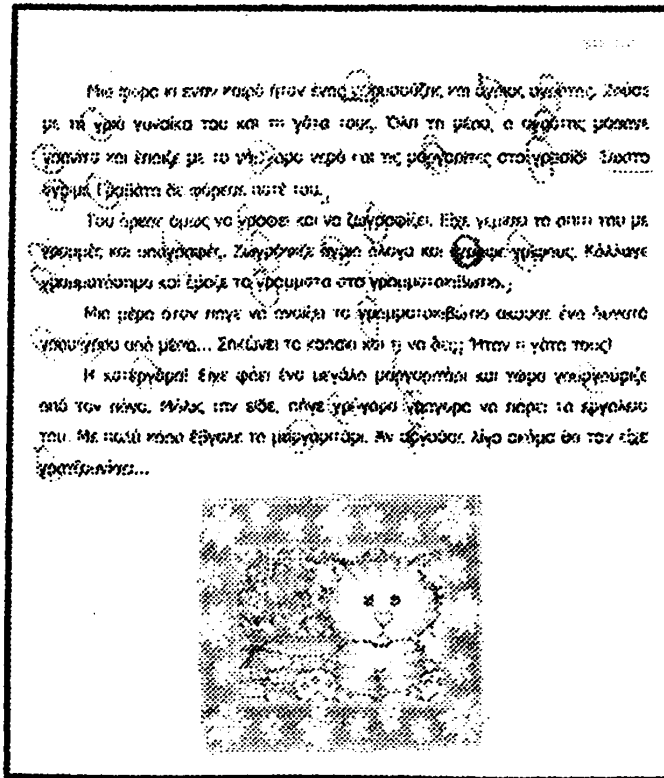 Μια φορα κι εναν καιρό ήταν ένας γρουσούζης και άγριος αγρότης. Ζούσε
με τη γριά γυναίκα του και τη γάτα τους. Όλη τη μέρα, ο αγρότης μάσαγε
γρανίτα και έπαιζε με το γάργαρο νερό και τις μαργαρίτες στο γρασίδι.
Γραβάτα δε φόρεσε ποτέ του.
Του άρεσε όμως να γράφει και να ζωγραφίζει. Είχε γεμίσει το σπίτι του με
γραμμές και υπογραφές. Ζωγράφιζε άγρια άλογα και έγραφε γρίφους. Κόλλαγε
γραμματόσημα και έριχνε τα γράμματα στο γραμματοκιβώτιο.
Μια μέρα όταν πήγε να ανοίξει το γραμματοκιβώτιο άκουσε ένα δυνατό
γρου γρου από μέσα... Σηκώνει το καπάκι και τι να δει; Ήταν η γάτα τους!
Η κατεργάρα! Είχε φάει ένα μεγάλο μαργαριτάρι και τώρα γουργούριζε
από τον πόνο. Μόλις την είδε, πήγε γρήγορα γρήγορα να πάρει τα εργαλεία
του. Με πολύ κόπο έβγαλε το μαργαριτάρι. Αν αργούσε λίγο ακόμα θα τον είχε
γρατζουνίσει...